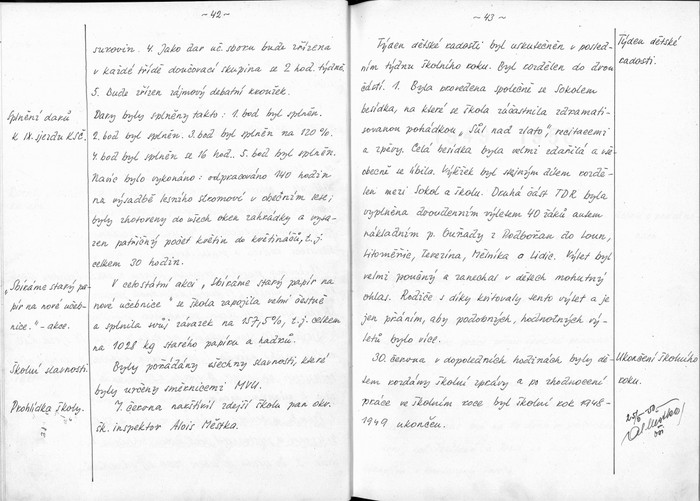 ~ 42 ~
surovin. 4. Jako dar uč. sboru bude zřízena
v každé třídě doučovací skupina se 2 hod. týdně.
5. Bude zřízen zájmový debatní kroužek.
Splnění darů
k IX. sjezdu KSČ.
Dary byly splněny takto: 1. bod byl splněn.
2. bod byl splněn. 3. bod byl splněn na 120%.
4. bod byl splněn se 16 hod.. 5. bod byl splněn.
Navíc bylo vykonáno: odpracováno 140 hodin
na výsadbě lesního stromoví v obecním lese;
byly zhotoveny do všech oken zahrádky a vysa-
zen patřičný počet květin do květináčů, t. j.
celkem 30 hodin.
„Sbíráme starý pa-
pír na nové učeb-
nice." - akce.
V celostátní akci „Sbíráme starý papír na
nové učebnice" se škola zapojila velmi čestně
a splnila svůj závazek na 157,5%, t. j. celkem
na 1028 kg starého papíru a hadrů.
Školní slavnosti.
Byly pořádány všechny slavnosti, které
byly určeny směrnicemi MVU.
Prohlídka školy.
7. června navštívil zdejší školu pan okr.
šk. inspektor Alois Městka.
~ 43 ~
Týden dětské
radosti.
Týden dětské radosti byl uskutečněn v posled-
ním týdnu školního roku. Byl rozdělen do dvou
částí. 1. Byla provedena společně se Sokolem
besídka, na které se škola zúčastnila zdramati-
sovanou pohádkou „Sůl nad zlato", recitacemi
a zpěvy. Celá besídka byla velmi zdařilá a vše-
obecně se líbila. Výtěžek byl stejným dílem rozdě-
len mezi Sokol a školu. Druhá část TDR byla
vyplněna dvoudenním výletem 40 žáků autem
nákladním p. z Podbořan do Loun,
Litoměřic, Terezína, Mělníka a Lidic. Výlet byl
velmi poučný a zanechal v dětech mohutný
ohlas. Rodiče s díky kvitovaly tento výlet a je
jen přáním, aby podobných, hodnotných vý-
letů bylo více.
Ukončení školního
roku.
30. června v dopoledních hodinách byly dě-
tem rozdány školní zprávy a po zhodnocení
práce ve školním roce byl školní rok 1948-
1949 ukončen.